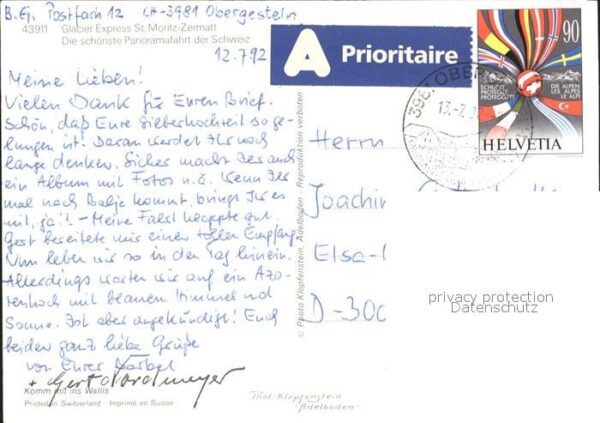 B.G. Postfach 12 CH-3981 Obergesteln
43911 Glacier Express St. Moritz-Zermatt
Die schönste Panoramafahrt der Schweiz
12.7.92
Meine Lieben!
Vielen Dank für Euren Brief.
Schön, daß Eure Silberhochzeit so ge-
lungen ist. Daran werdet Ihr noch
lange denken. Sicher macht Ihr auch
ein Album mit Fotos u.ä. Wenn Ihr
mal nach Balje kommt, bringt Ihr es
mit, ja!! - Meine Fahrt klappte gut.
Gert bereitete mir einen tollen Empfang.
Nun leben wir so in den Tag hinein.
Allerdings warten wir auf ein Azo-
renhoch mit blauem Himmel und
Sonne. Ist aber angekündigt! Euch
beiden ganz liebe Grüße
von Eurer Bärbel
+ Gert Nordmeyer
Komm mit ins Wallis
Printed in Switzerland - Imprimé en Suisse
© Photo Klopfenstein, Adelboden - Reproduktion verboten
A Prioritaire
90
SCHÜTZT
PROTÉGEZ
PROTEGGETE
DIE ALPEN
LES ALPES
LE ALPI
HELVETIA
Herrn
Joachim
Elsa-
D-300
privacy protection
Datenschutz
Phot Klopfenstein
Adelboden